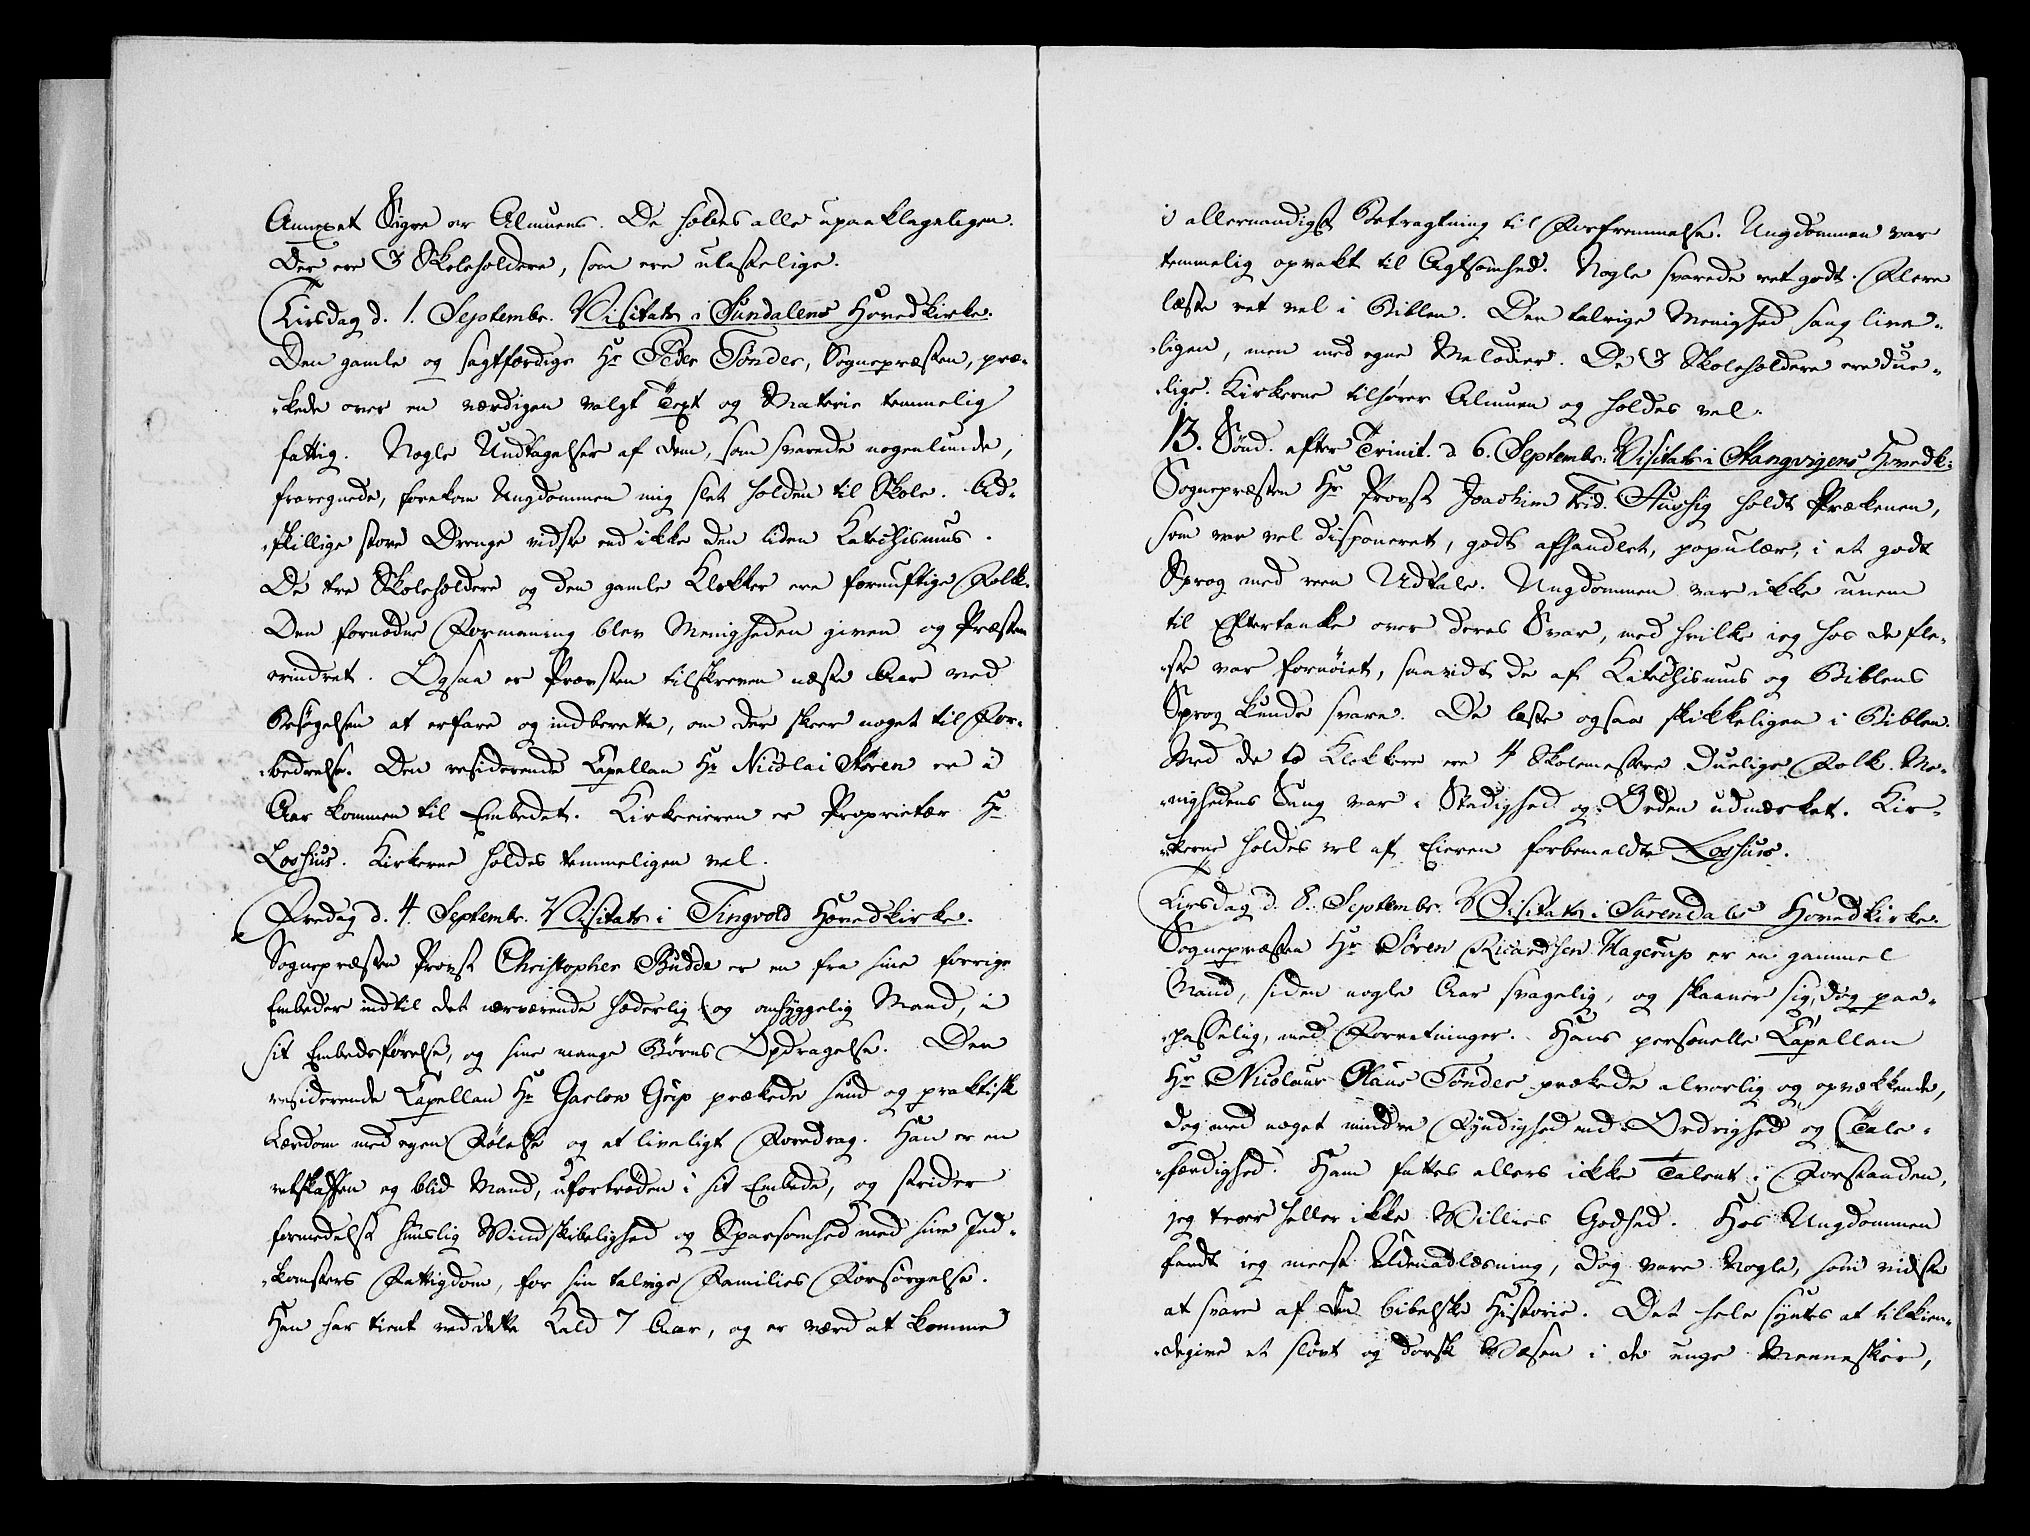 Annexet Sigre er Almuens. De holdes alle upaaklageligen.
Der ere 3 Skoleholdere, som ere ulastelige.
Tirsdag d. 1. Septembr. Visitats i Sundalens Hovedkirke.
Den gamle og sagtfærdige Hr Peder Tønder, Sognepræsten, præ-
kede over en værdigen valgt Text og Materie temmelig
fattig. Nogle Undtagelser af dem, som svarede nogenlunde,
fraregnede, forekom Ungdommen mig slet holden til Skole. Ad-
skillige store Drenge vidste end ikke den liden Katechismus.
De tre Skoleholdere og den gamle Klokker ere fornuftige Folk.
Den fornødne Formaning blev Menigheden given og Præsten
erindret. Ogsaa er Provsten tilskreven næste Aar ved
Besøgelsen at erfare og indberette, om der skeer noget til For-
bedrelse. Den residerende Capellan Hr Nicolai Støren er i
Aar kommen til Embedet. Kirkeeieren er Proprietær Hr
Loshius. Kirkerne holdes temmeligen vel.
Fredag d. 4. Septembr. Visitats i Tingvold Hovedkirke.
Sognepræsten Provst Christopher Budde er en fra sine forrige
Embeder indtil det nærværende hæderlig og omhyggelig Mand, i
sit Embedsførelse, og sine mange Børns Opdragelse. Den
residerende Capellan Hr Garlow Grip prækede sund og praktisk
Lærdom med egen Følelse og et liveligt Foredrag. Han er en
retskaffen og blid Mand, ufortrøden i sit Embede, og strider
formedelst huuslig Vindskibelighed og Sparsomhed med sine Ind-
komsters Fattigdom, for sin talrige Families Forsørgelse.
Han har tient ved dette Kald 7 Aar, og er værd at komme
i allernaadigst Betragtning til Forfremmelse. Ungdommen var
temmelig opvakt til Agtsomhed. Nogle svarede ret godt. Flere
læste ret vel i Biblen. Den talrige Menighed sang live-
ligen, men med egne Melodier. De 3 Skoleholdere ere due-
lige. Kirkerne tilhører Almuen og holdes vel.
13. Sønd. efter Trinit. d 6. Septembr. Visitats i Stangvigens Hovedk.
Sognepræsten Hr Provst Joachim Frid. Aussig holdt Prækenen,
som var vel disponeret, godt afhandlet, populær, i et godt
Sprog med reen Udtale. Ungdommen var ikke unem
til Eftertanke over deres Svar, med hvilke jeg hos de fle-
ste var fornøiet, saavidt de af Katechismus og Biblens
Sprog kunde svare. De læste ogsaa skikkeligen i Biblen.
Med de to Klokkere ere 4 Skolemestere duelige Folk. Me-
nighedens Sang var i Stadighed og Orden udmerket. Kir-
kerne holdes vel af Eieren forbemeldte Loshius.
Tirsdag d. 8. Septembr. Visitats i Surendals Hovedkirke.
Sognepræsten Hr Søren Ricardsen Hagerup er en gammel
Mand, siden nogle Aar svagelig, og skaaner sig, dog paa-
passelig, med Forretninger. Hans personelle Capellan
Hr Nicolaus Claus Tønder prækede alvorlig og opvækkende,
dog med noget mindre Fyndighed end Ordrighed og Tale-
færdighed. Ham fattes ellers ikke Talent i Forstanden,
jeg troer heller ikke Villies Godhed. Hos Ungdommen
fandt jeg meest Udenadlæsning, dog vare Nogle, som vidste
at svare af den bibelske Historie. Det hele syntes at tilkien-
degive et sløvt og dorsk Væsen i de unge Mennesker,